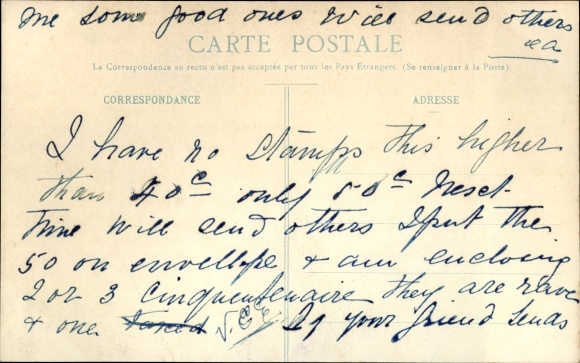 me some good ones Will send others
CARTE POSTALE
La Correspondance au recto n'est pas acceptée par tous les Pays Etrangers. (Se renseigner à la Poste).
CORRESPONDANCE
ADRESSE
I have no stamps this higher
than 40c only 50c Next
time will send others I put the
50 on envelope + am enclosing
2 or 3 Cinquentenaire they are rare
+ one If your friend sends